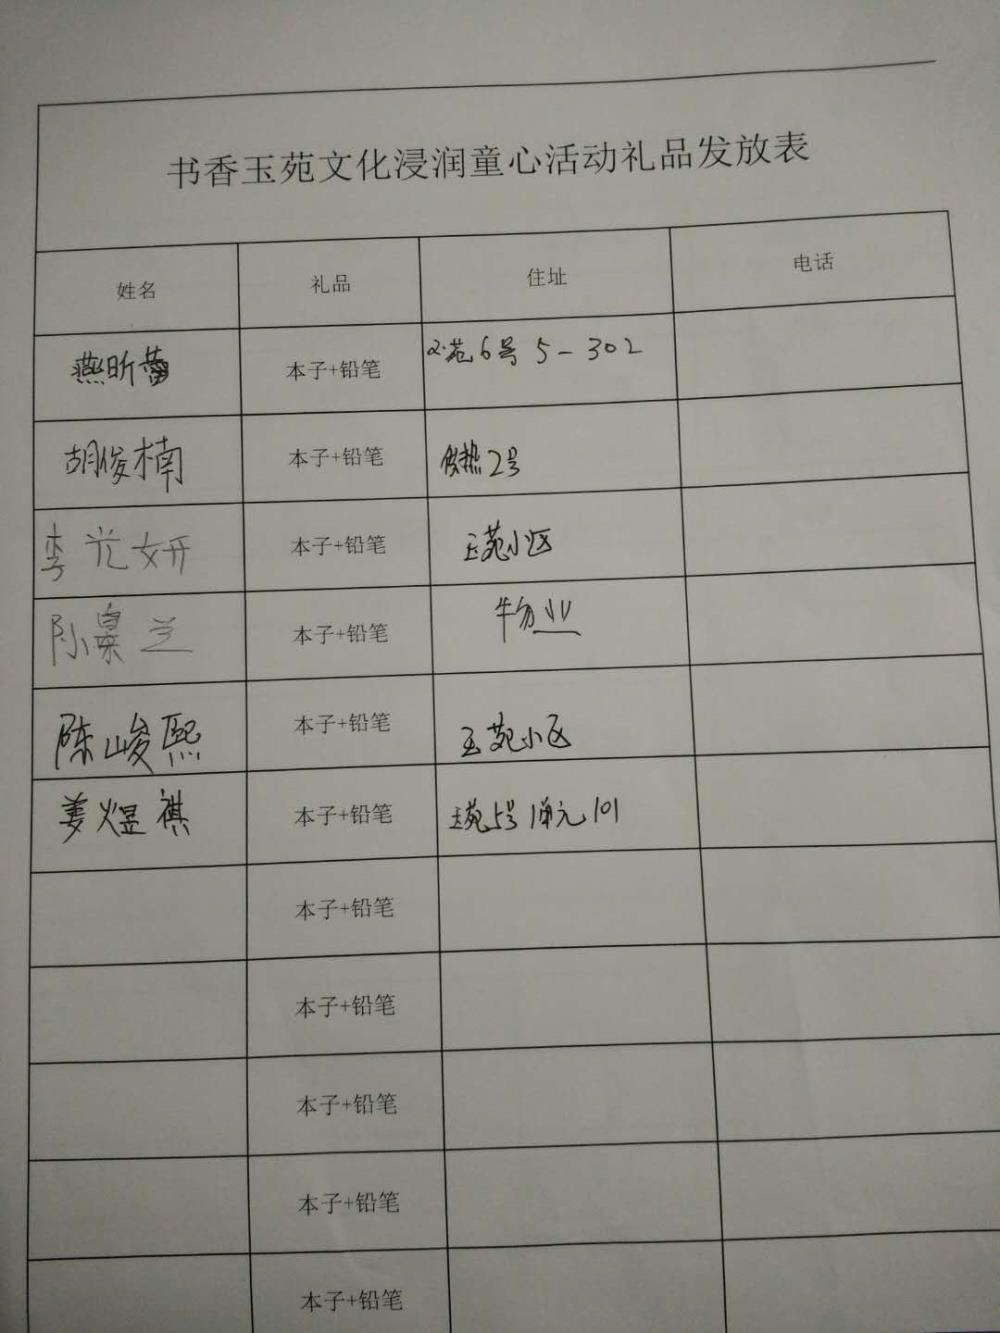 书香玉苑文化浸润童心活动礼品发放表
姓名 礼品 住址 电话
燕昕蕾 本子+铅笔 苑6号 5-302
胡俊楠 本子+铅笔 供热2号
李光妍 本子+铅笔 玉苑小区
本子+铅笔 物业
陈峻熙 本子+铅笔 玉苑小区
姜煜祺 本子+铅笔 玉苑5号1单元101
本子+铅笔
本子+铅笔
本子+铅笔
本子+铅笔
本子+铅笔